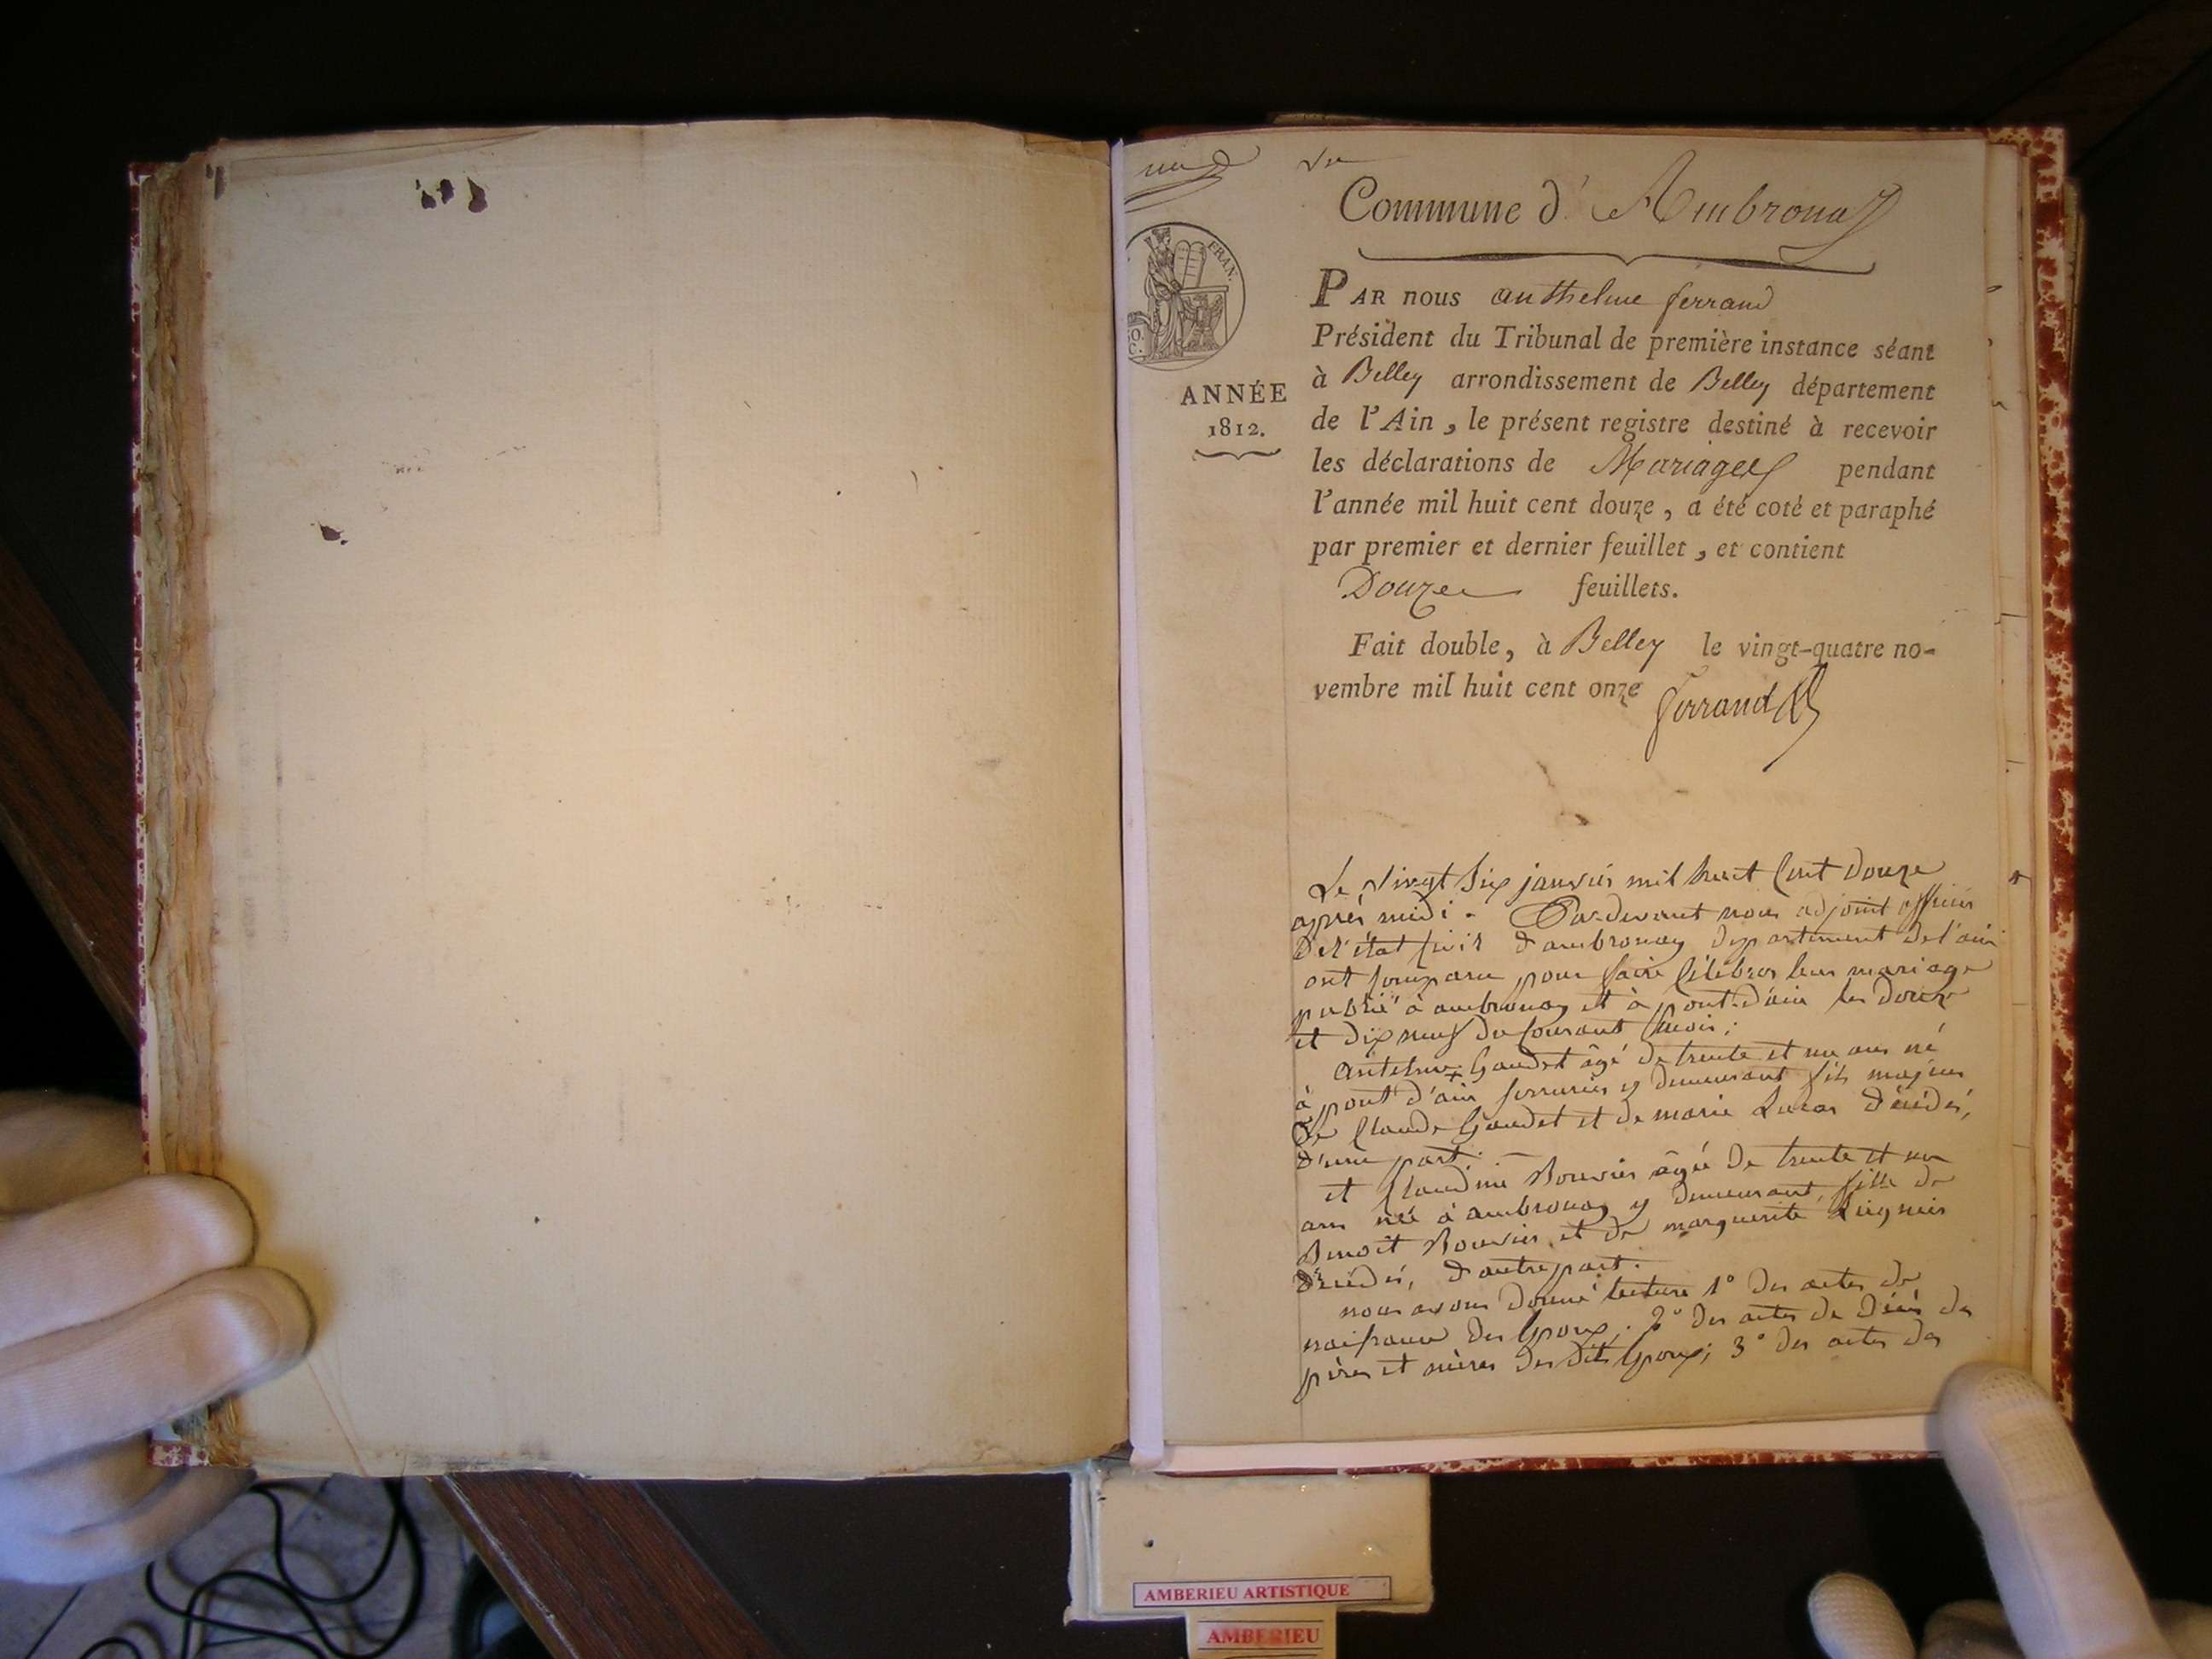 Commune d' Ambronay
FRAN.
PAR nous anthelme ferrand
Président du Tribunal de première instance séant
à Belley arrondissement de Belley département
ANNÉE
1812.
de l'Ain, le présent registre destiné à recevoir
les déclarations de Mariages pendant
l'année mil huit cent douze, a été coté et paraphé
par premier et dernier feuillet, et contient
Douze feuillets.
Fait double, à Belley le vingt-quatre no-
vembre mil huit cent onze ferrand
Le vingt six janvier mil huit cent douze
après midi. Par-devant nous adjoint officier
de l'état civil d'ambronay departement de l'ain
ont comparu pour faire célébrer leur mariage
publié à ambronay et à pont-d'ain les douze
et dix neuf du courant savoir;
antelme Gaudet âgé de trente et un ans né
à pont d'ain serrurier y demeurant fils majeur
de Claude Gaudet et de marie Lucas décédés,
d'une part.
et Claudine Bouvier âgée de trente et un
ans née à ambronay y demeurant, fille de
Benoît Bouvier et de marguerite
décédés, d'autre part.
nous avons donné lecture 1° des actes de
naissance des époux; 2° des actes de décès des
pères et mères des dits époux; 3° des actes des
AMBERIEU ARTISTIQUE
AMBERIEU